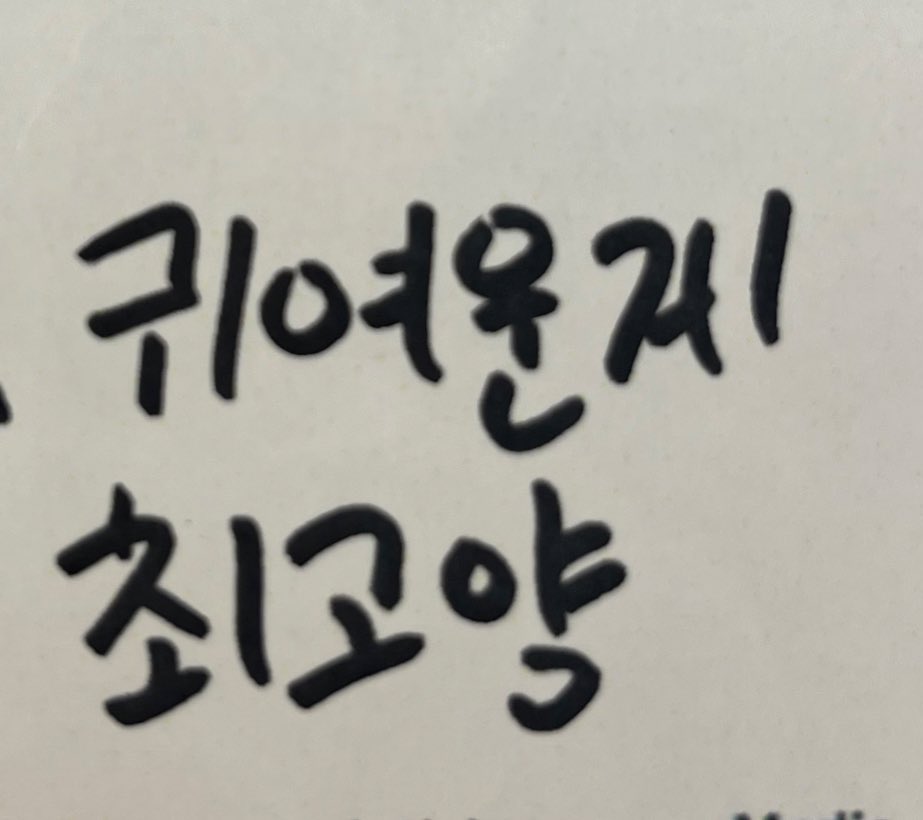 귀여운게
최고야